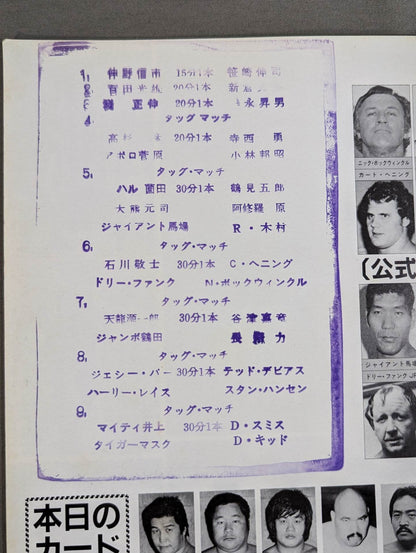 1, 仲野信市 15分1本 笹崎伸司
2 百田光雄 20分1本 新倉
3 正伸 20分1本 永昇男
4 タッグマッチ
高杉 20分1本 寺西 勇
アポロ菅原 小林邦昭
5, タッグ・マッチ
ハル薗田 30分1本 鶴見五郎
大熊元司 阿修羅 原
ジャイアント馬場 R・木村
6, タッグ・マッチ
石川敬士 30分1本 C・ヘニング
ドリー・ファンク N・ボックウィンクル
7, タッグ・マッチ
天龍源一郎 30分1本 谷津嘉章
ジャンボ鶴田 長 力
8, タッグ・マッチ
ジェシー・バー 30分1本 テッド・デビアス
ハーリー・レイス スタン・ハンセン
9, タッグ・マッチ
マイティ井上 30分1本 D・スミス
タイガーマスク D・キッド
ニック・ボックウィンクル
カート・ヘニング
(公式
ジャイアント馬場
ドリー・ファンク・JR
本日の
カード